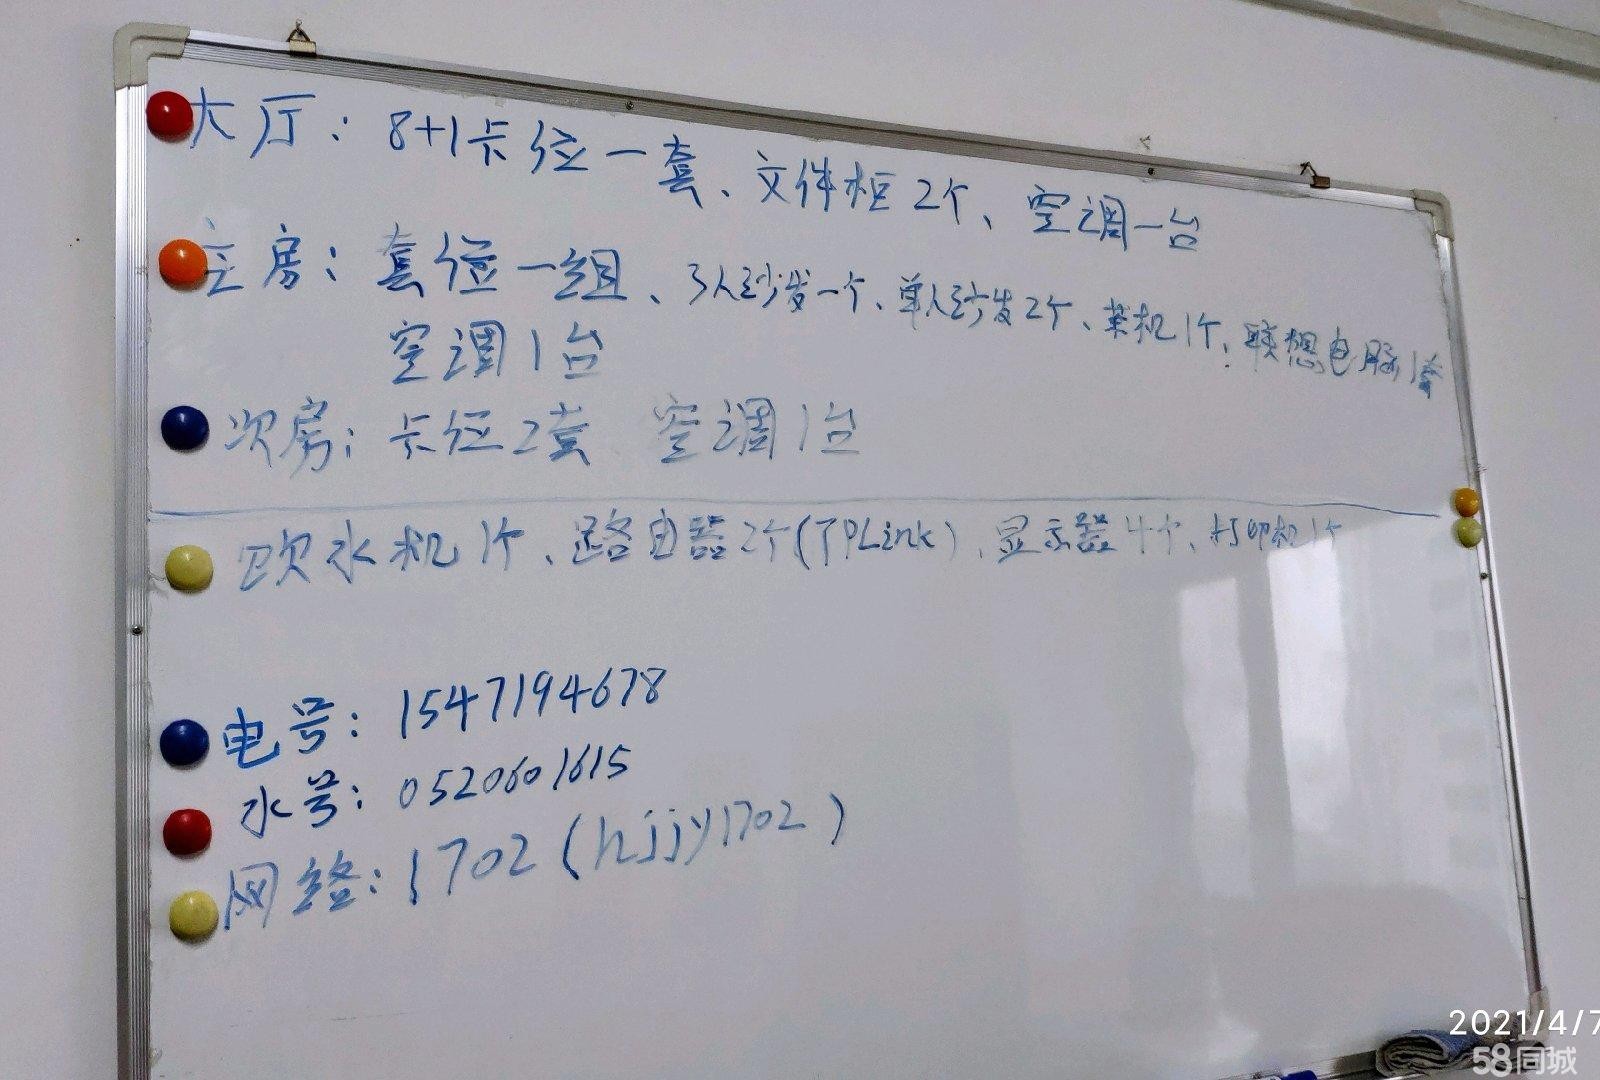 大厅：8+1卡位一套、文件柜2个、空调一台
主房：套位一组、3人沙发一个、单人沙发2个、茶机1个、联想电脑1套
空调1台
次房：卡位2套 空调1台
饮水机1个、路由器2个(TPLink)、显示器4个、打印机1个
电号：1547194678
水号：0520601615
网络：1702(hjjy1702)
2021/4/7
58同城